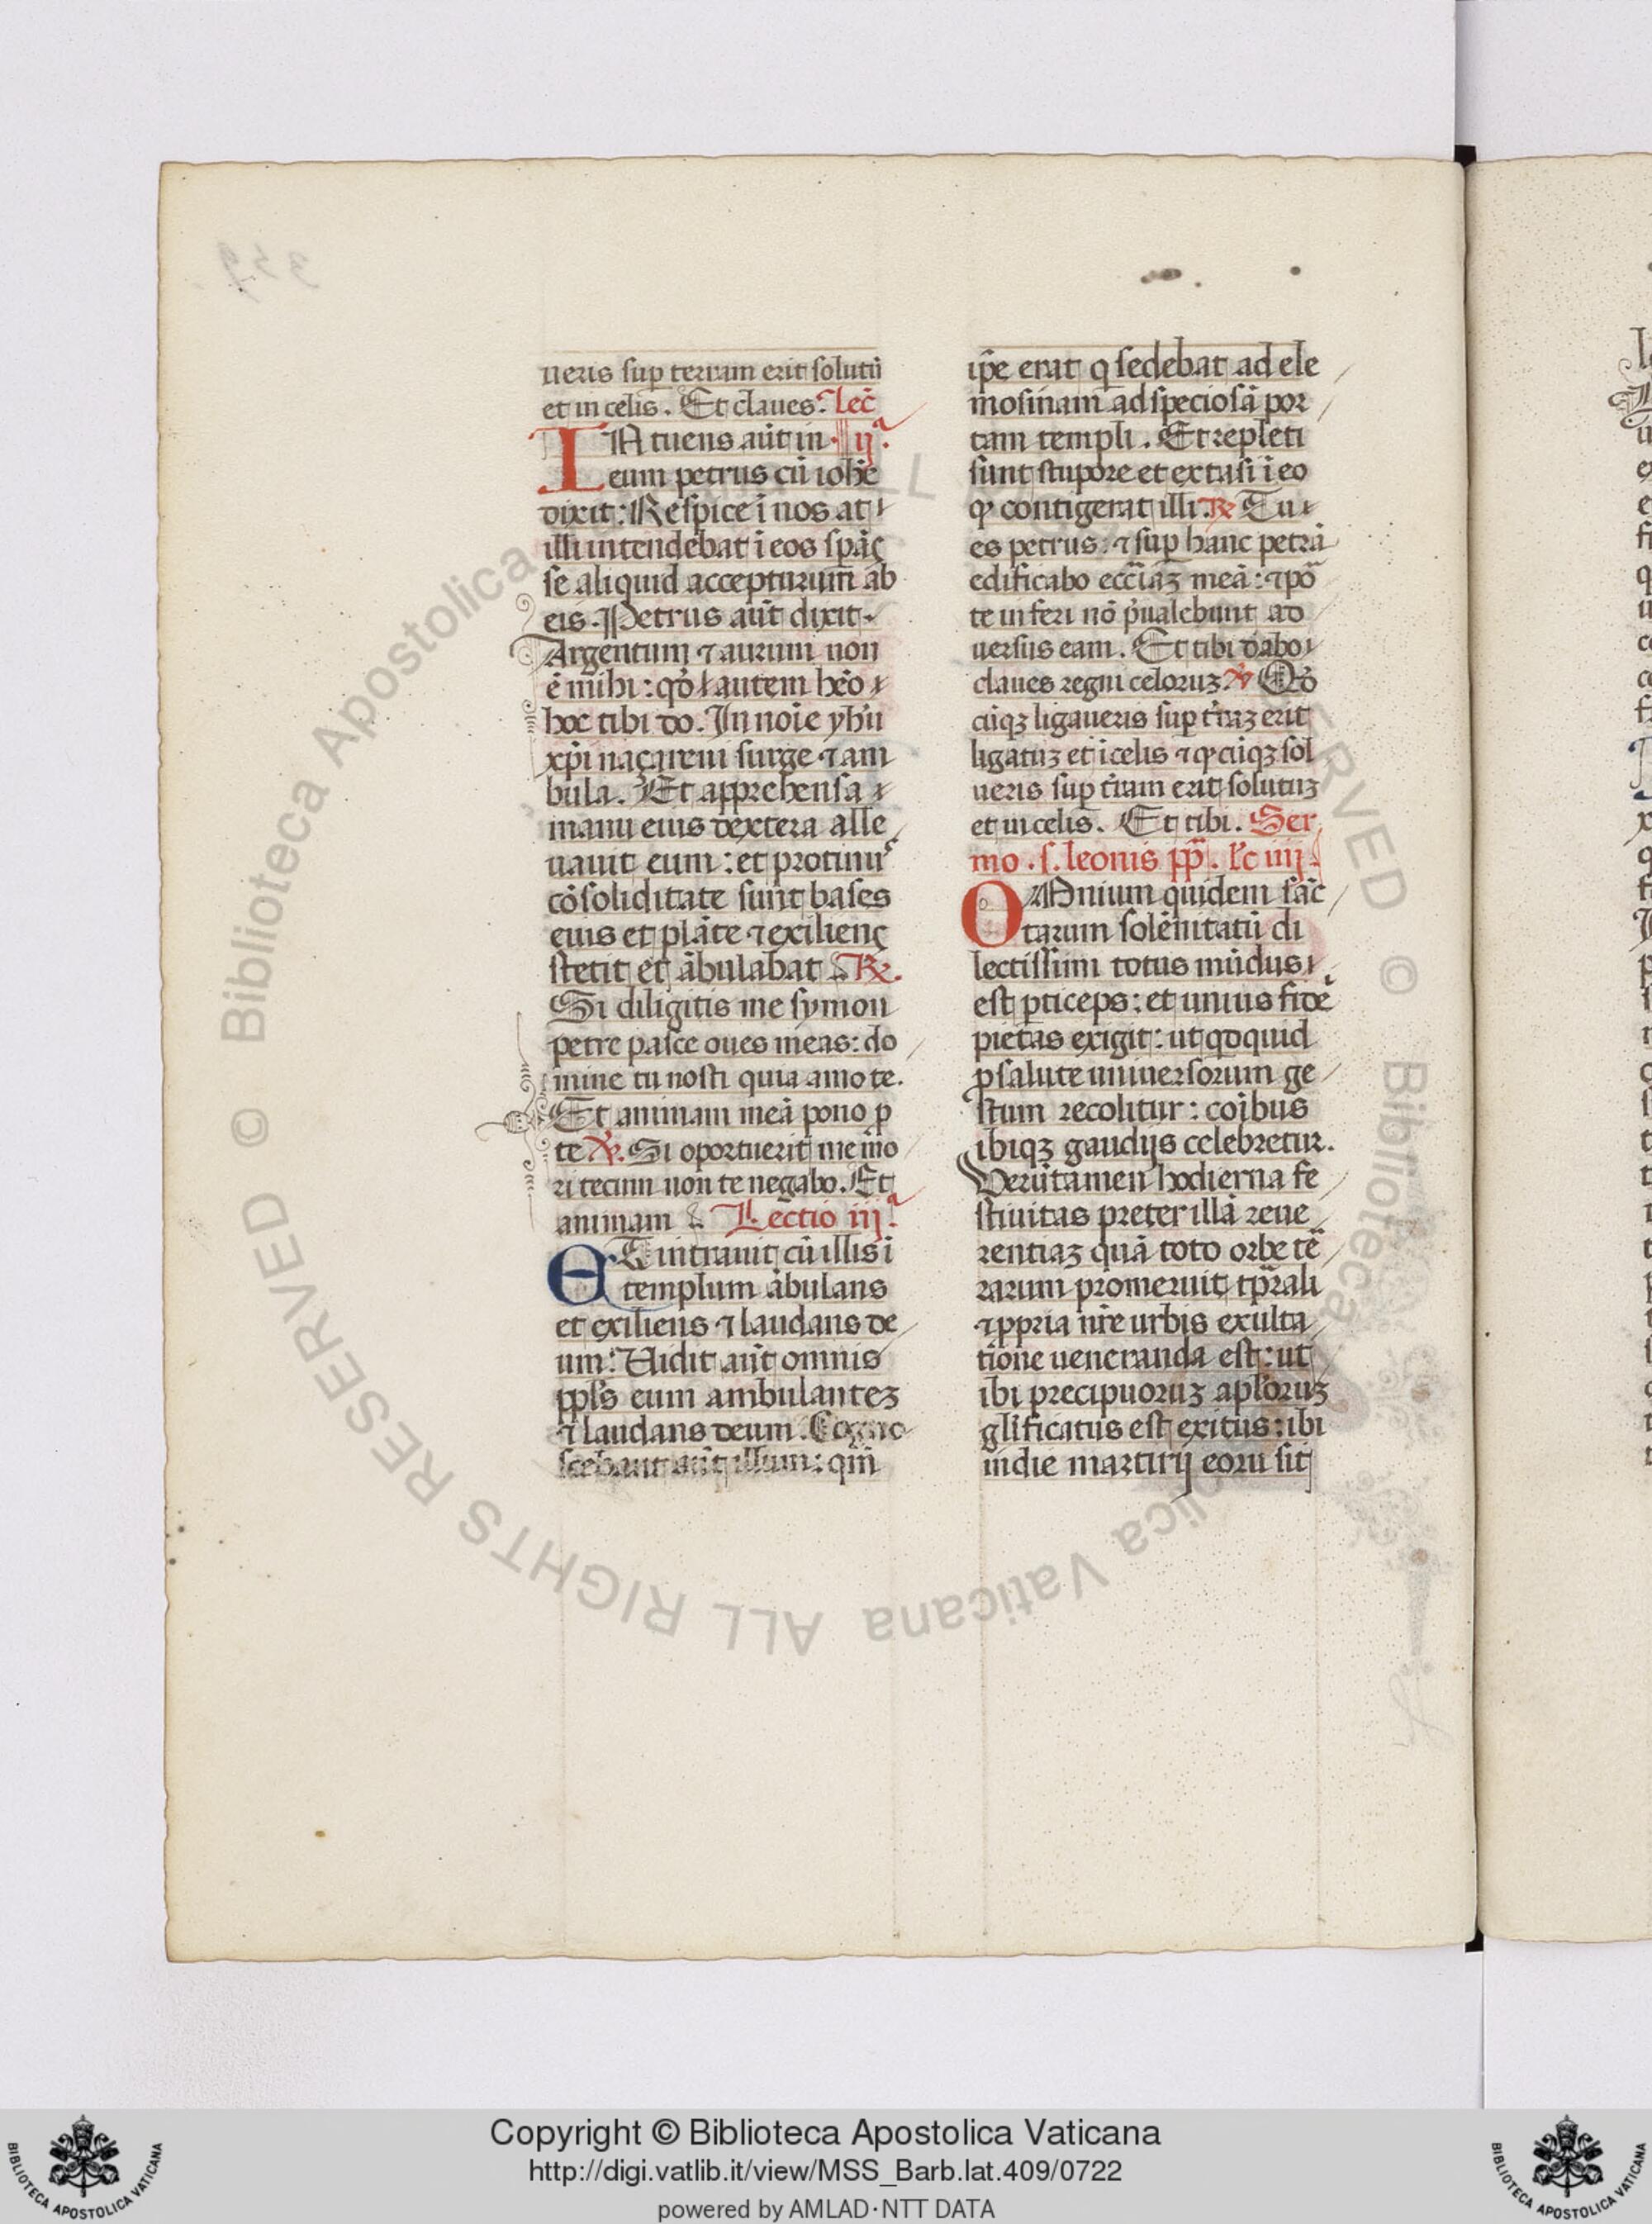 ueris sup terram erit solutū
et in celis. Et claues. lec̄
INtuens aūt in ijᵃ.
eum petrus cū iohē
dixit: Respice ī nos at
illi intendebat ī eos spāc̨
se aliquid accepturum ab
eis. Petrus aūt dixit.
Argentum ⁊ aurum non
ē mihi: qd̄ autem hēo
hoc tibi do. In noīe yhū
xp̄i naçareni surge ⁊ am
bula. Et apprehensa
manu eius dextera alle
uauit eum: et protinus
cōsoliditate sunt bases
eius et plāte ⁊ exilienc̨
stetit et ābulabat. ℟.
Si diligitis me symon
petre pasce oues meas: do
mine tu nosti quia amo te.
Et animam meā pono p
te ℣. Si oportuerit me mo
ri tecum non te negabo. Et
animam. Lectio iijᵃ.
ET intrauit cū illis ī
templum ābulans
et exiliens ⁊ laudans de
um. Uidit aūt omnis
ppl̄s eum ambulantez
⁊ laudans deum. Cogno
scebant aūt illum: qm̄
ip̄e erat q sedebat ad ele
mosinam ad speciosā por
tam templi. Et repleti
sunt stupore et extasi ī eo
qꝫ contigerat illi. ℟ Tu
es petrus: ⁊ sup hanc petrā
edificabo ecc̄iaꝫ meā: ⁊ pō
te inferi nō p̄ualebunt ad
uersus eam. Et tibi dabo
claues regni celoruꝫ. ℣ Qd̄
cūqꝫ ligaueris sup t̄raꝫ erit
ligatuꝫ et ī celis ⁊ qꝫcūqꝫ sol
ueris sup t̄ram erit solutuꝫ
et in celis. Et tibi. Ser
mo. s. leonis pp̄. lc̄ iiij.
OMnium quidem sāc
tarum solēnitatū di
lectissimi totus mūdus
est pticeps: et unius fidē
pietas exigit: ut qdquid
p salute uniuersorum ge
stum recolitur: coībus
ibiqꝫ gaudijs celebretur.
Uerūtamen hodierna fe
stiuitas preter illā reue
rentiaꝫ quā toto orbe tē
rarum promeruit sp̄eali
⁊ ppria nr̄e urbis exulta
tione ueneranda est: ut
ibi precipuoruꝫ apl̄oruꝫ
gl̄ificatus est exitus: ibi
indie martirij eoru sit